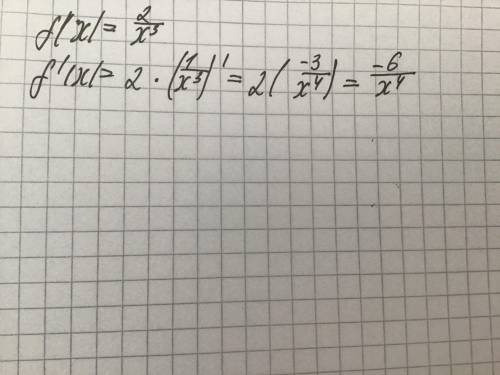 f(x)= 2/x³
f'(x)= 2 · (1/x³)' = 2(-3/x⁴) = -6/x⁴